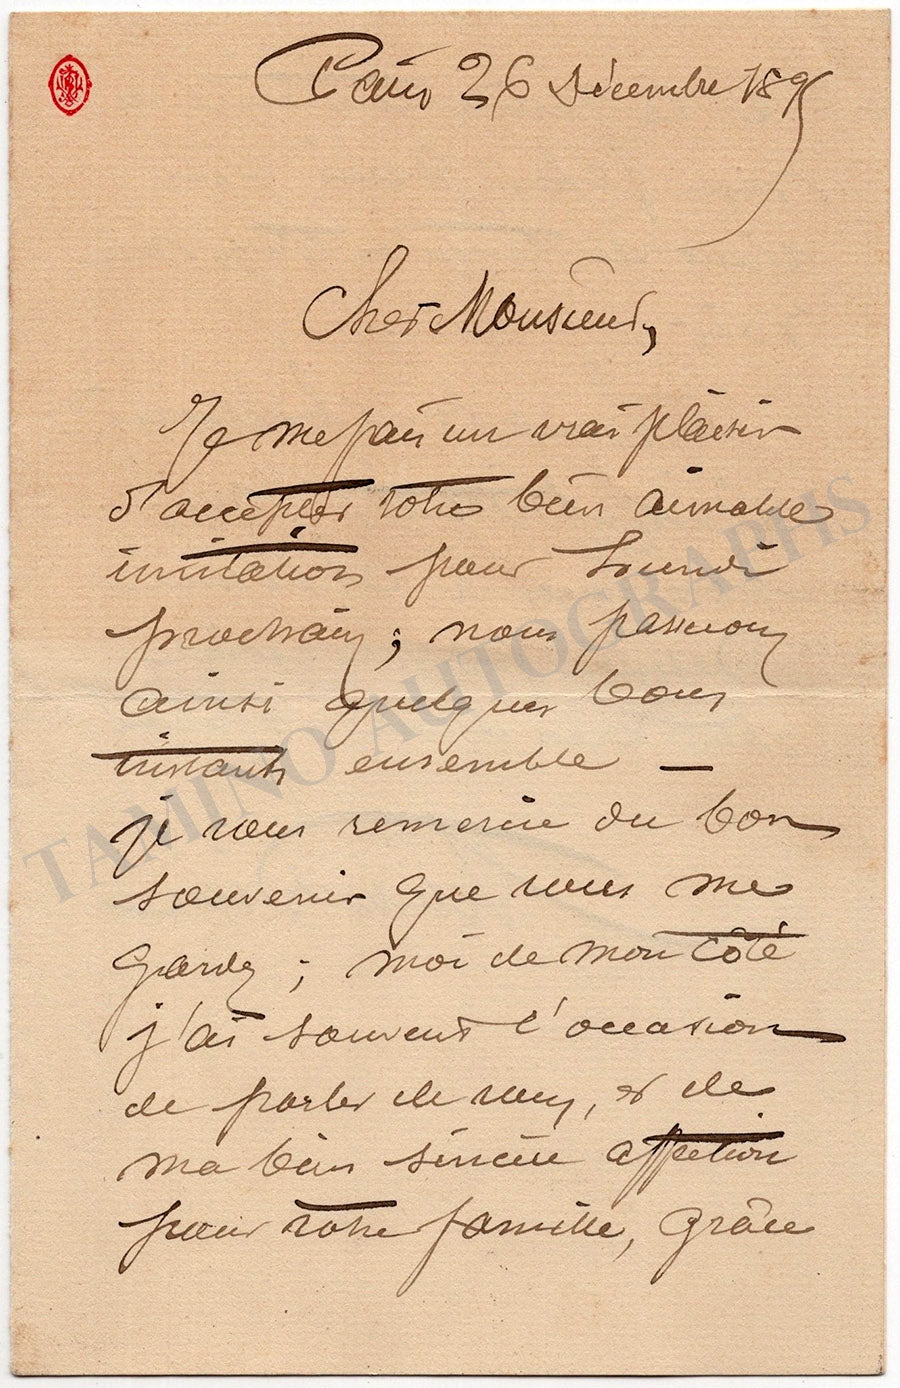 Paris 26 Décembre 1895
Cher Monsieur,
Je me fais un vrai plaisir
d'accepter votre bien aimable
invitation pour Lundi
prochain ; nous passerons
ainsi quelques bons
instants ensemble —
je vous remercie du bon
souvenir que vous me
gardez ; moi de mon côté
j'ai souvent l'occasion
de parler de vous, et de
ma bien sincère affection
pour votre famille, grâce
TAMINO AUTOGRAPHS